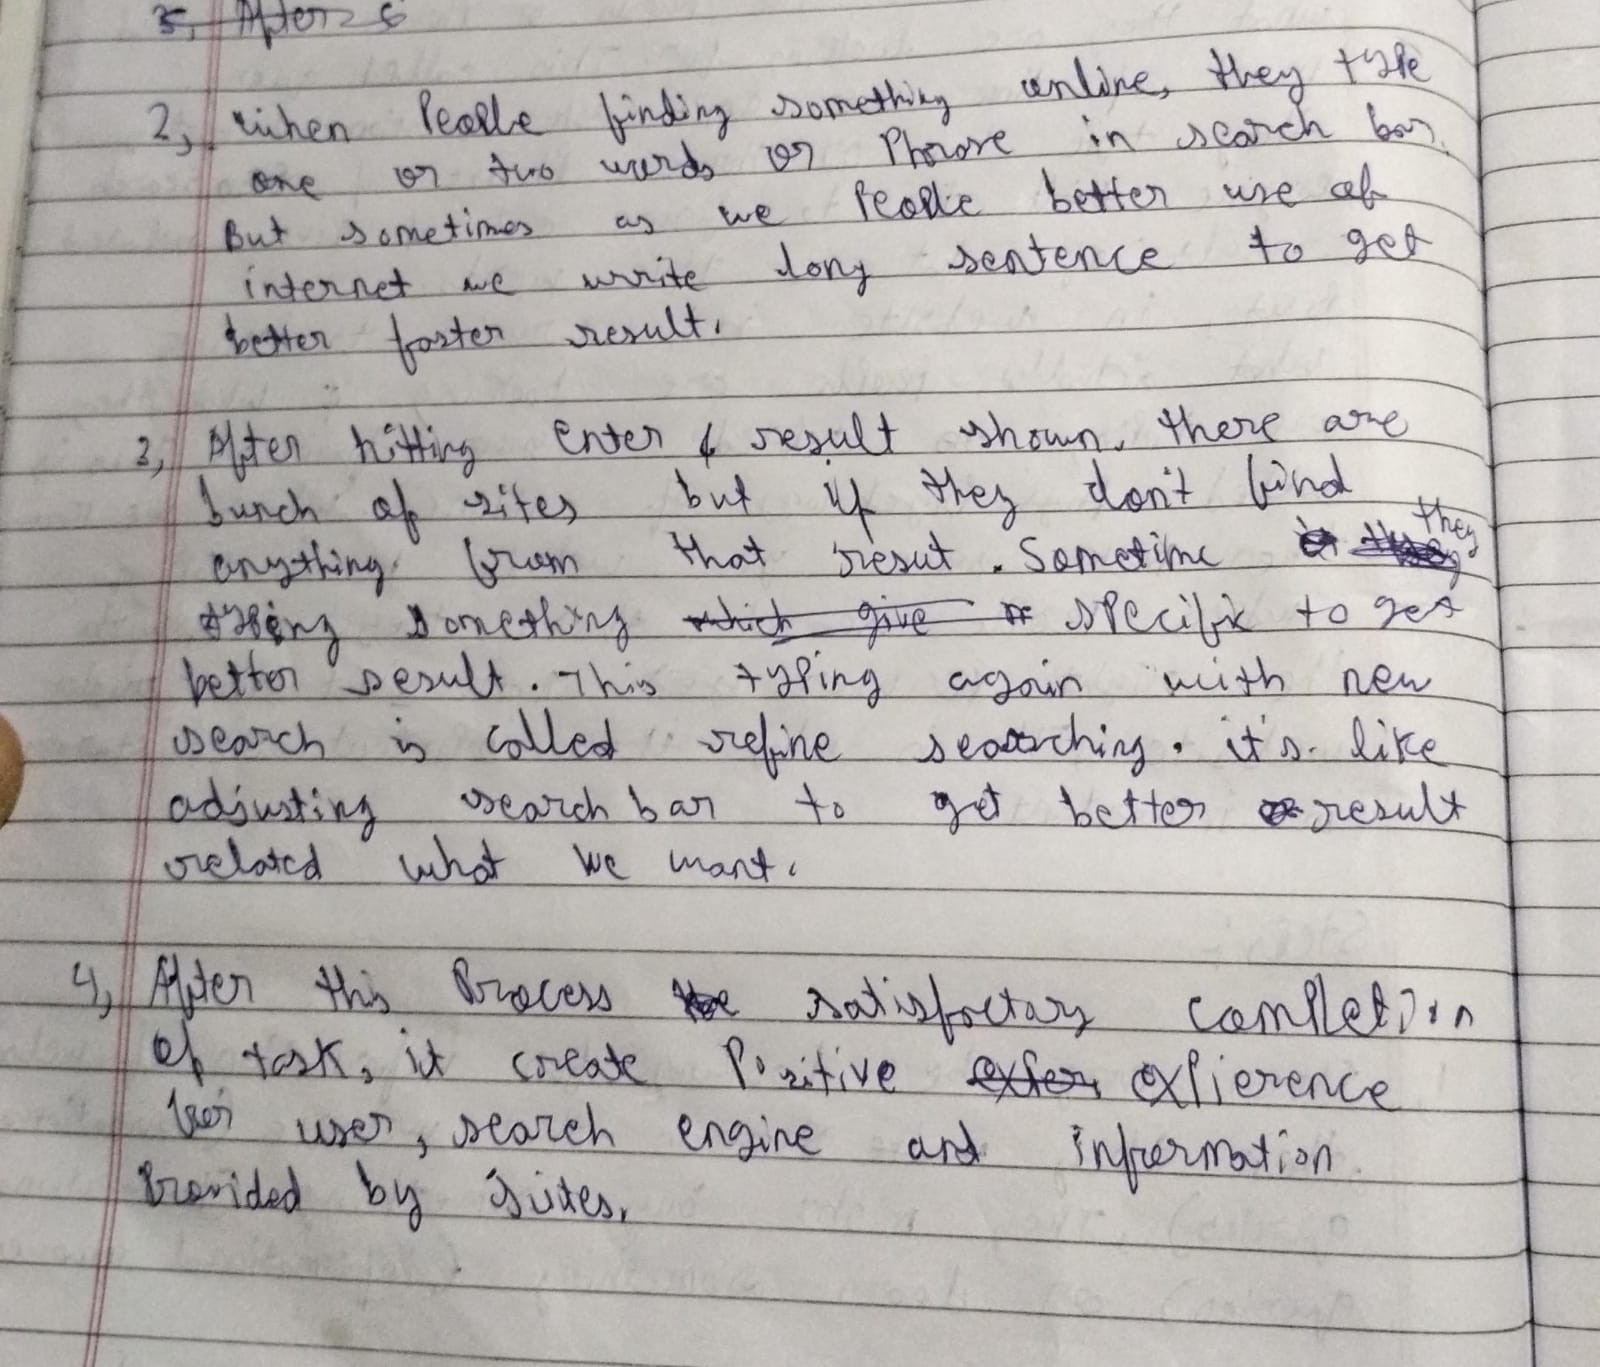 2, when People finding something online, they type
one or two words or Phrase in search bar.
But sometimes as we People better use of
internet we write long sentence to get
better faster result.
3, After hitting enter & result shown. there are
bunch of sites but if they don't find
anything from that resut. Sometime they
typing something which give specific to get
better result. This typing again with new
search is called refine searching. it's like
adjusting search bar to get better result
related what we want.
4, After this Process satisfactory completion
of task, it create Positive expierence
for user, search engine and information
Provided by sites.